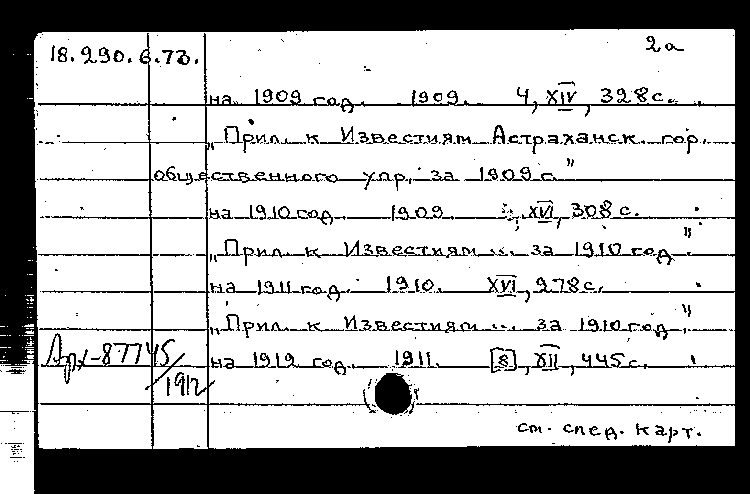 18.290.6.73.
2а
на 1909 год. 1909. 4, XIV, 328с.
„Прил. к Известиям Астраханск. гор.
общественного упр. за 1909 г."
на 1910 год. 1909. XVI, 308 с.
„Прил. к Известиям ... за 1910 год".
на 1911 год. 1910. XVI, 278с.
„Прил. к Известиям ... за 1910 год".
Арх-87745/1912
на 1912 год. 1911. [8], XII, 445 с.
см. след. карт.